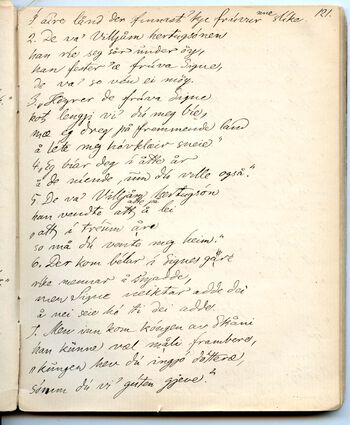 I adre land der finnast kje frúvur slike. 121.
2. De va' Villjåm hertugsonen
han rie seg sør under øy,
han fester æ frúva Signe,
de va' so ven ei møy.
3. "Høyrer de frúva Signe
kor lengji vi' dú meg bie,
mæ eg dreg på fremmende land
å lete meg håvklæir sneie"
4. "Eg biar deg i åtte år
å de niende, um dú ville også."
5. De va' Villjåm hertugsón
han vendte att å lei
"att i trium åre
so må dú vente meg heim."
6. Der kom belar i Signes gård
rike mennar å
men Signe neiktar adde dei
å nei seie ho ti dei adde.
7. Men so kom kongen av Skåni
han kunne væl måli frambere,
"kúngen hev dú ingjó dotteræ,
sómm dú vi' gúten gjeve."